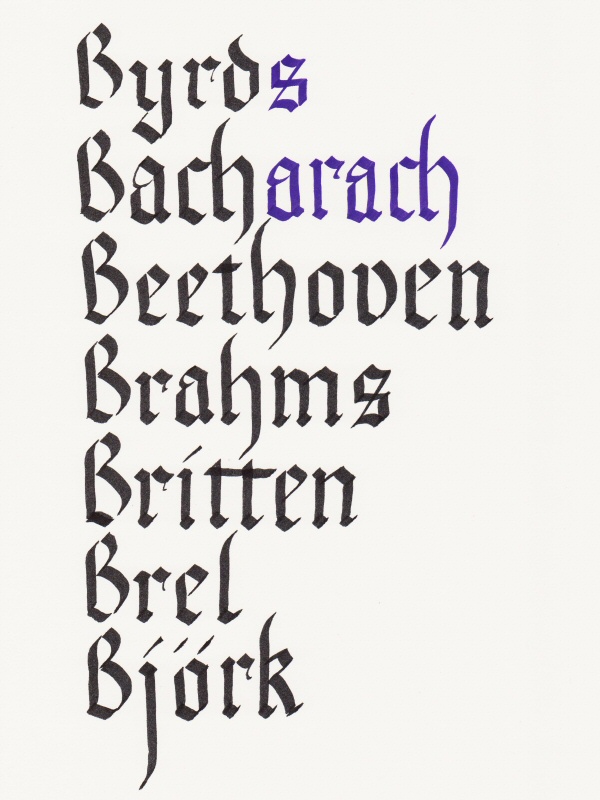 Byrds
Bacharach
Beethoven
Brahms
Britten
Brel
Björk